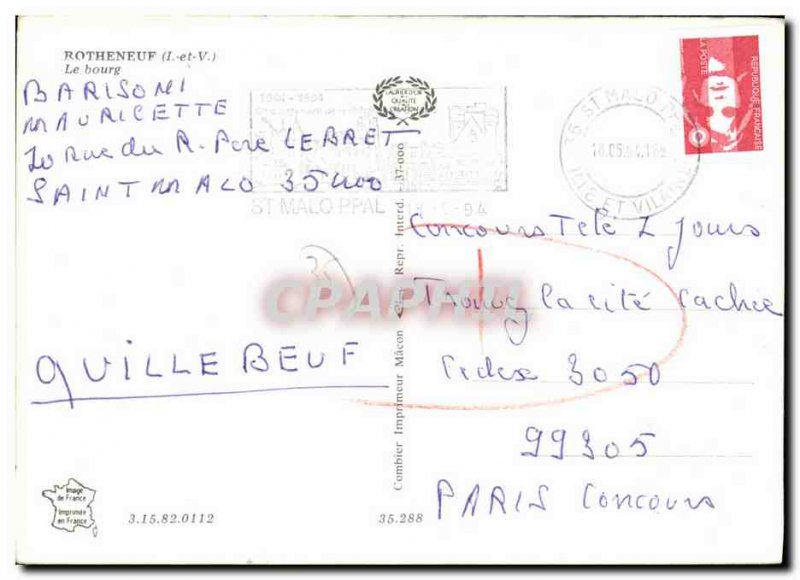 ROTHENEUF (I.-et-V.)
Le bourg
BARISONI
MAURICETTE
20 Rue du R. Pere LEBRET
SAINT MALO 35400
QUILLEBEUF
Image
de France
Imprimée
en France
3.15.82.0112
35.288
LABEL D'OR
QUALITÉ
CRÉATION
Combier Imprimeur Mâcon
Repr. Interd.
37-000
1994
ST MALO PPAL
94
ST MALO PPAL
ILLE ET VILAINE
LA POSTE
REPUBLIQUE FRANÇAISE
CPAPHIL
Concours Tele 2 Jours
Trouvez la cité cachée
Cedex 3050
99305
PARIS Concours